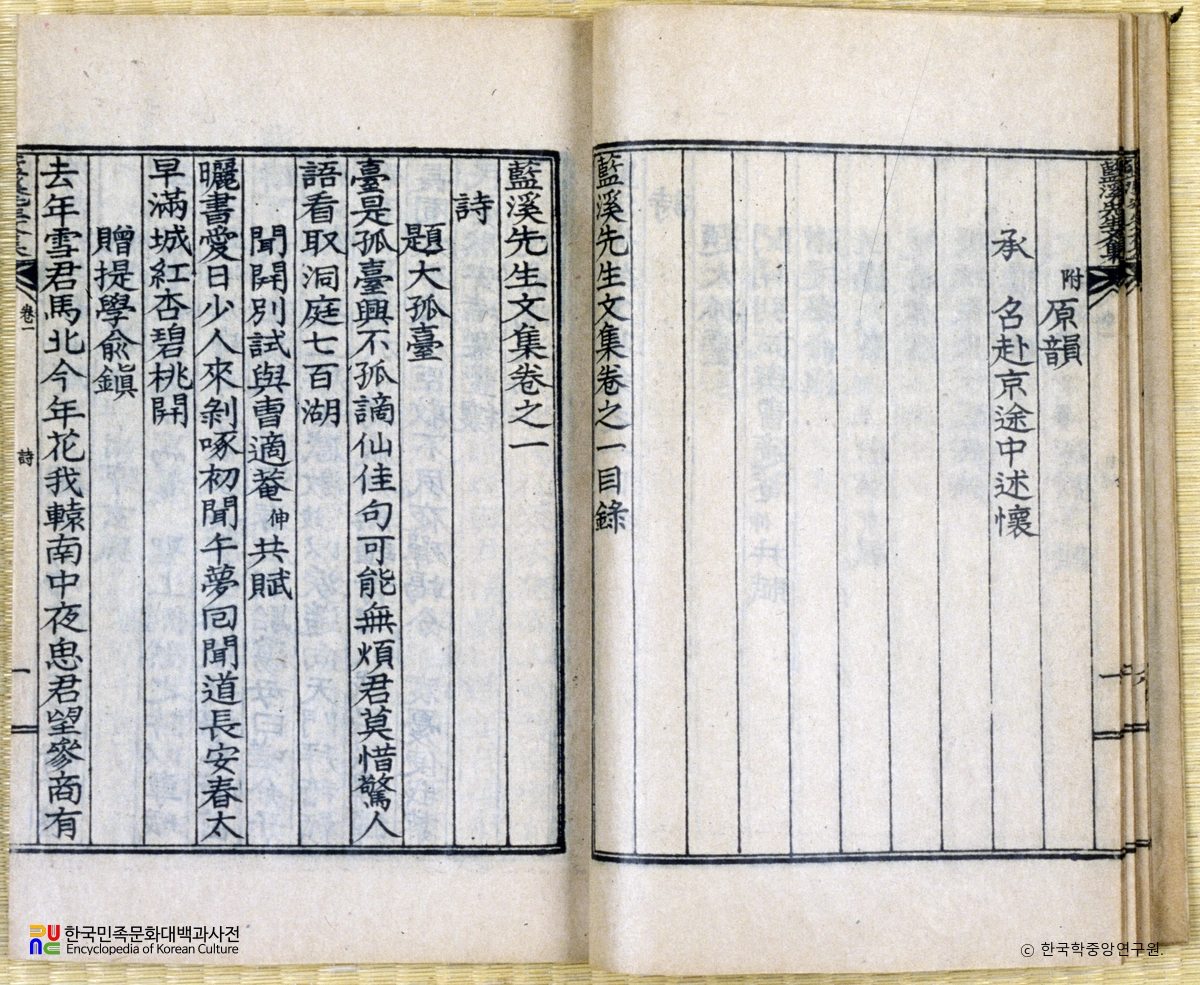 藍溪先生文集
附 原韻
承 名赴京途中述懷
藍溪先生文集卷之一目錄
藍溪先生文集卷之一
詩
題大孤臺
臺是孤臺興不孤謫仙佳句可能無煩君莫惜驚人
語看取洞庭七百湖
聞開別試與曺適菴伸共賦
曬書愛日少人來剝啄初聞午夢回聞道長安春太
早滿城紅杏碧桃開
贈提學兪鎭
去年雪君馬北今年花我轅南中夜思君望參商有
卷一
詩
一
한국민족문화대백과사전
Encyclopedia of Korean Culture
ⓒ 한국학중앙연구원.